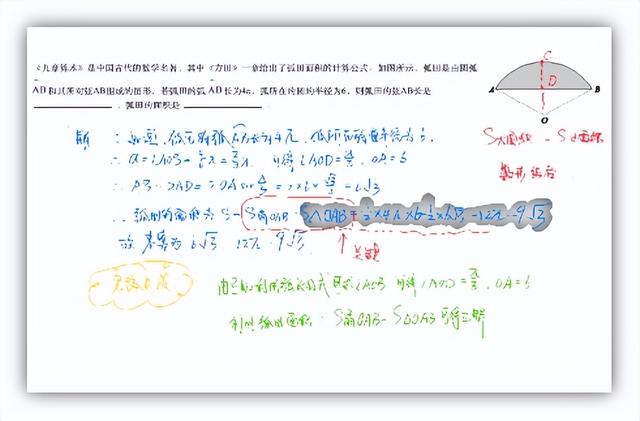 《九章算术》是中国古代的数学名著，其中《方田》一章给出了弧田面积的计算公式．如图所示，弧田是由圆弧
AB和其所对弦AB围成的图形，若弧田的弧AB长为4π，弧所在的圆的半径为6，则弧田的弦AB长是
，弧田的面积是
C
D
A B
O
S大面积 - S小面积
数形结合
解
∴ α=∠AOB= 可得∠AOD= OA=6
∴ AB=2AD=2OA sin = 2×6× =6√3
∴ 弧田的面积为 S=S扇OAB-S△OAB= ×4π×6- ×6√3 =12π-9√3
故 答案为 6√3 12π-9√3
关键
由已知利用弧长公式可求∠AOB 可得∠AOD= OA=6
利用弧田面积 S扇OAB-S△OAB可得